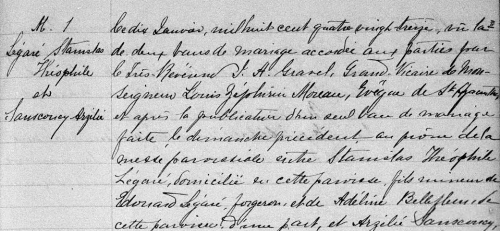 M. 1
Légaré Stanislas
Théophile
et
Sanscoucy Azélie
Le dix Janvier, mil huit cent quatre vingt treize, vu la
de deux bans de mariage accordée aux parties par
le Très Révérend J. A. Gravel, Grand Vicaire de Mon-
Seigneur Louis Zéphirin Moreau, Evêque de St Hyacinthe
et après la publication d'un seul ban de mariage
faite le dimanche précédent au prône de la
messe paroissiale entre Stanislas Théophile
Légaré, domicilié en cette paroisse, fils mineur de
Edouard Légaré, forgeron, et de Adéline Bellefleur, de
cette paroisse, d'une part, et Azélie Sanscoucy